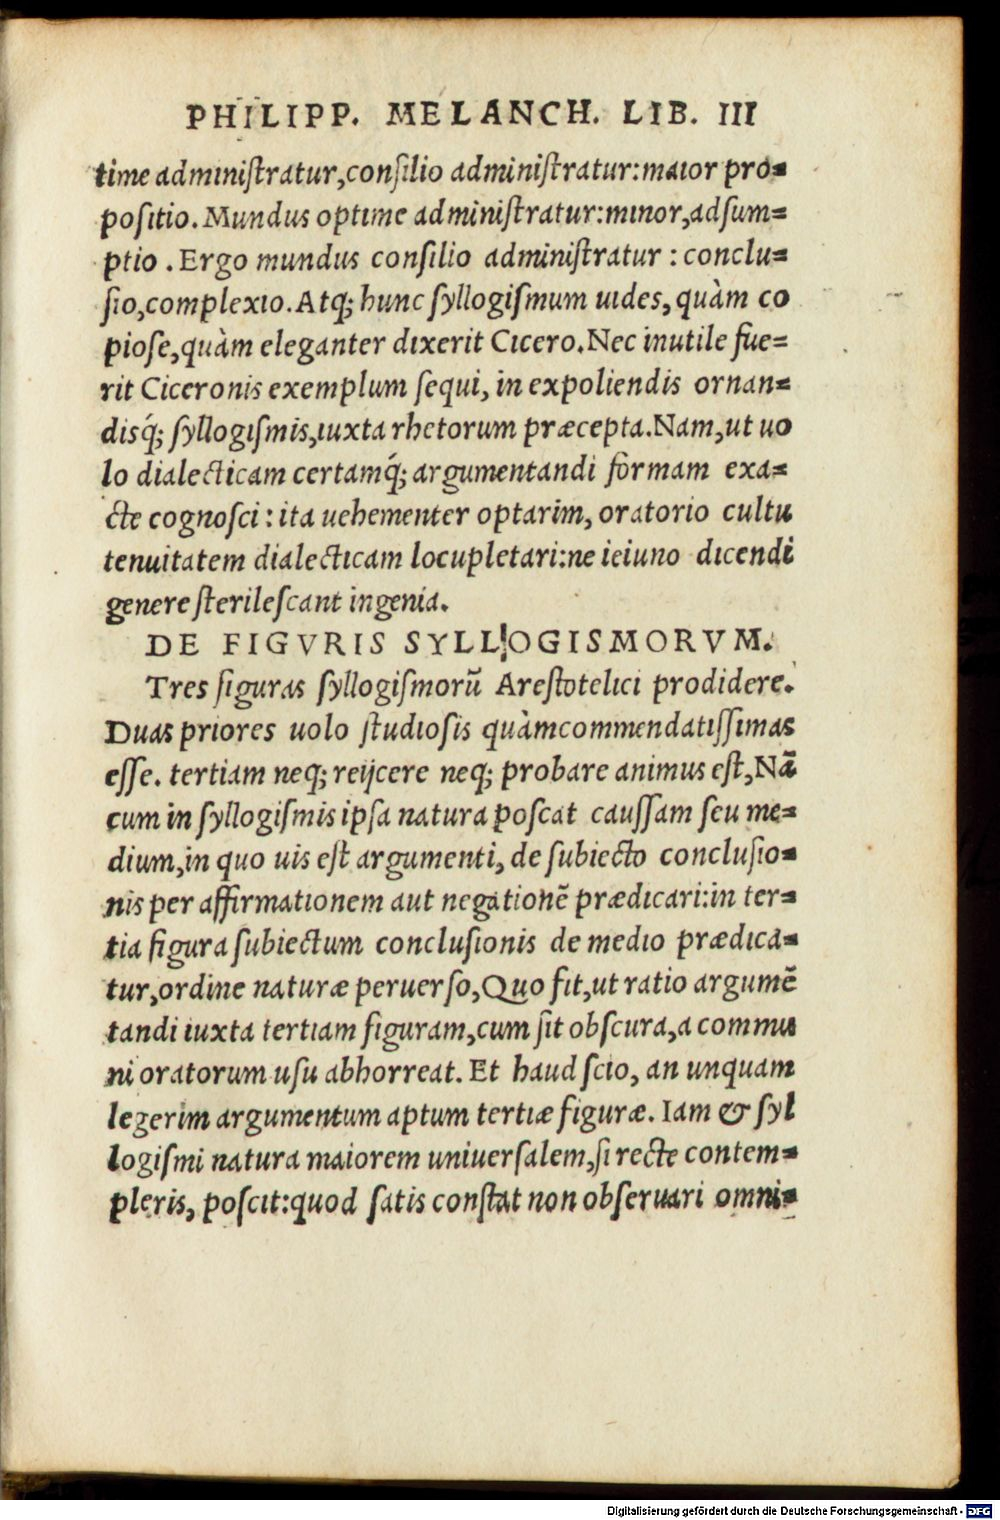 PHILIPP. MELANCH. LIB. III
time administratur,consilio administratur:maior pro=
positio. Mundus optime administratur:minor,adsum=
ptio . Ergo mundus consilio administratur : conclu=
sio,complexio. Atq; hunc syllogismum uides, quàm co
piose,quàm eleganter dixerit Cicero. Nec inutile fue=
rit Ciceronis exemplum sequi, in expoliendis ornan=
disq́; syllogismis,iuxta rhetorum præcepta. Nam,ut uo
lo dialecticam certamq́; argumentandi formam exa=
cte cognosci : ita uehementer optarim, oratorio cultu
tenuitatem dialecticam locupletari:ne ieiuno dicendi
genere sterilescant ingenia.
DE FIGVRIS SYLLOGISMORVM.
Tres figuras syllogismorũ Arestotelici prodidere.
Duas priores uolo studiosis quàmcommendatissimas
esse. tertiam neq; reijcere neq; probare animus est, Nã
cum in syllogismis ipsa natura poscat caussam seu me=
dium,in quo uis est argumenti, de subiecto conclusio=
nis per affirmationem aut negationẽ prædicari:in ter=
tia figura subiectum conclusionis de medio prædica=
tur,ordine naturæ peruerso, Quo fit,ut ratio argumẽ
tandi iuxta tertiam figuram,cum sit obscura,a commu
ni oratorum usu abhorreat. Et haud scio, an unquam
legerim argumentum aptum tertiæ figuræ. Iam & syl
logismi natura maiorem uniuersalem,si recte contem=
pleris, poscit:quod satis constat non obseruari omni=
Digitalisierung gefördert durch die Deutsche Forschungsgemeinschaft - DFG